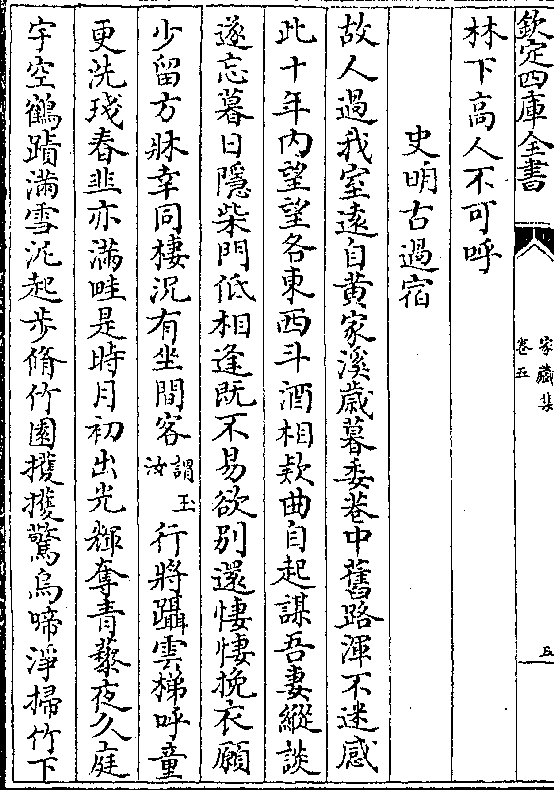 欽定四庫全書
家藏集
卷五
五
林下高人不可呼
史明古過宿
故人過我室遠自黄家溪歲暮委巷中舊路渾不迷感
此十年内望望各東西斗酒相欵曲自起謀吾妻縱談
遂忘暮日隱柴門低相逢既不易欲別還悽悽挽衣願
少留方牀幸同棲況有坐間客謂玉汝行將躡雲梯呼童
更洗琖春韭亦滿畦是時月初出光輝奪青藜夜久庭
宇空鶴蹟滿雪泥起步脩竹園擭擭驚烏啼淨掃竹下